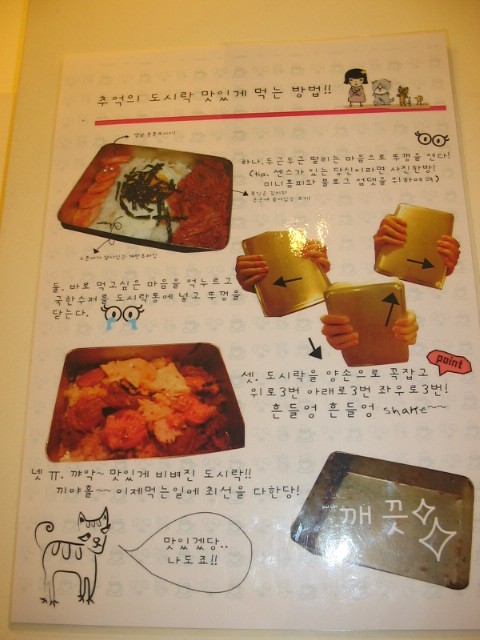 추억의 도시락 맛있게 먹는 방법!!
하나. 두근두근 떨리는 마음으로 뚜껑을 연다!
(tip. 센스가 있는 당신이라면 사진한방!
미니홈피와 블로그 업뎃을 위하여)
둘. 바로 먹고싶은 마음을 억누르고
국한수저를 도시락통에 넣고 뚜껑을
닫는다.
point
셋. 도시락을 양손으로 꼭잡고
위로3번 아래로3번 좌우로3번!
흔들엉 흔들엉 shake~~
넷 ㅠ. 꺄악~ 맛있게 비벼진 도시락!!
끼야홀~~ 이제먹는일에 최선을 다한당!
깨끗
맛있겠당..
나도죠!!